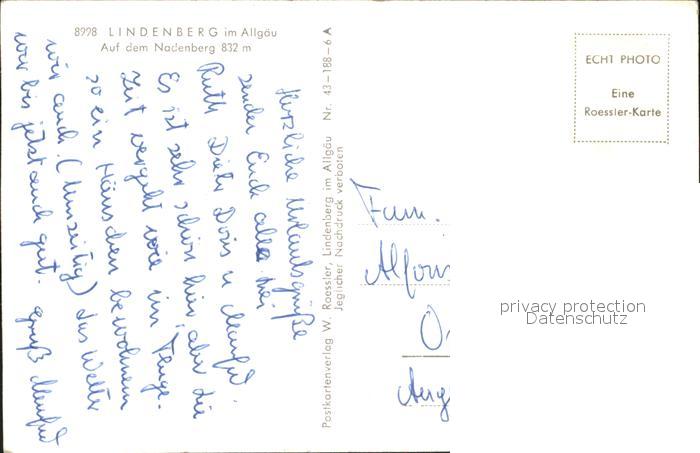 8998 LINDENBERG im Allgäu
Auf dem Nadenberg 832 m
Herzliche Urlaubsgrüße
senden Euch alle
Ruth Dieter Doris u Manfred.
Es ist sehr schön hier, aber die
Zeit vergeht wie im Fluge.
so ein Häuschen bewohnen
wir auch. (Unzeitig) das Wetter
war bis jetzt auch gut. Gruß Manfred
Postkartenverlag W. Roessler, Lindenberg im Allgäu Nr. 43-188-6 A
Jeglicher Nachdruck verboten
ECHT PHOTO
Eine
Roessler-Karte
Fam.
Alfons
privacy protection
Datenschutz